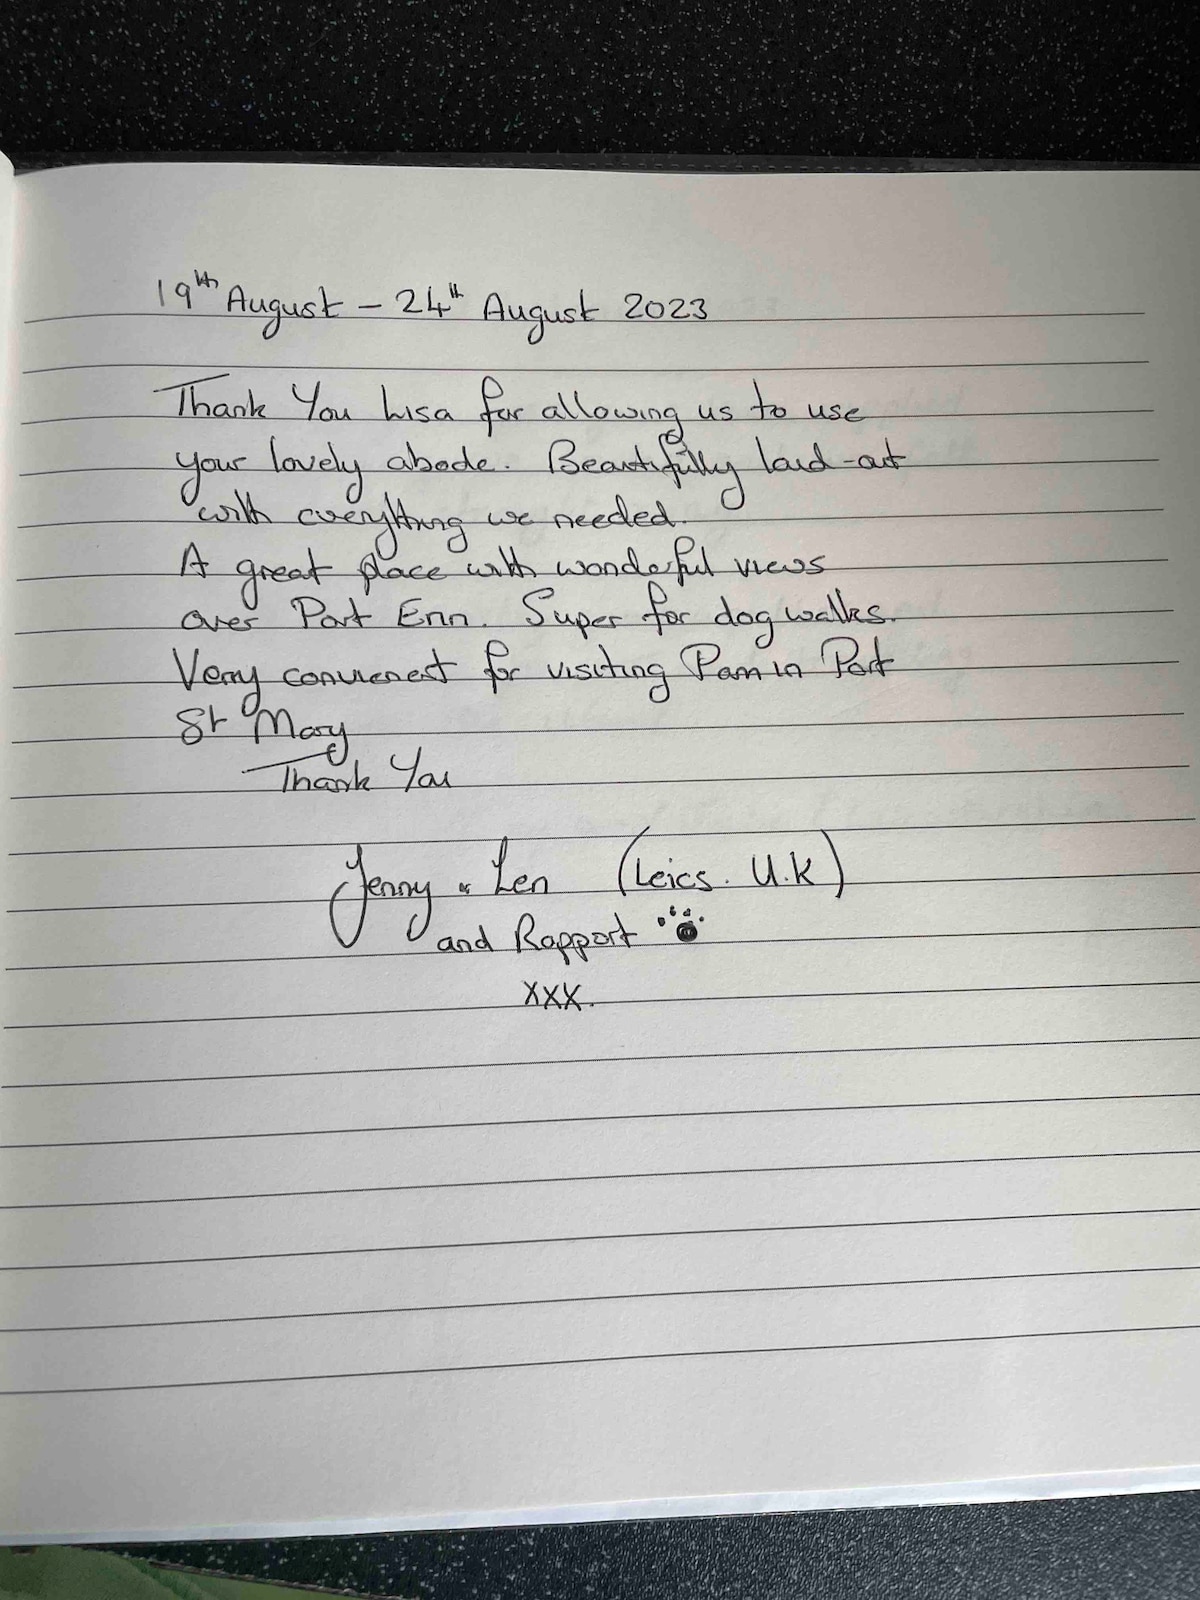 19th August - 24th August 2023
Thank You Lisa for allowing us to use
your lovely abode. Beautifully laid-out
with everything we needed.
A great place with wonderful views
over Port Erin. Super for dog walks.
Very convienent for visiting Pam in Port
St Mary
Thank You
Jenny & Len (Leics. U.K)
and Rapport
xxx.